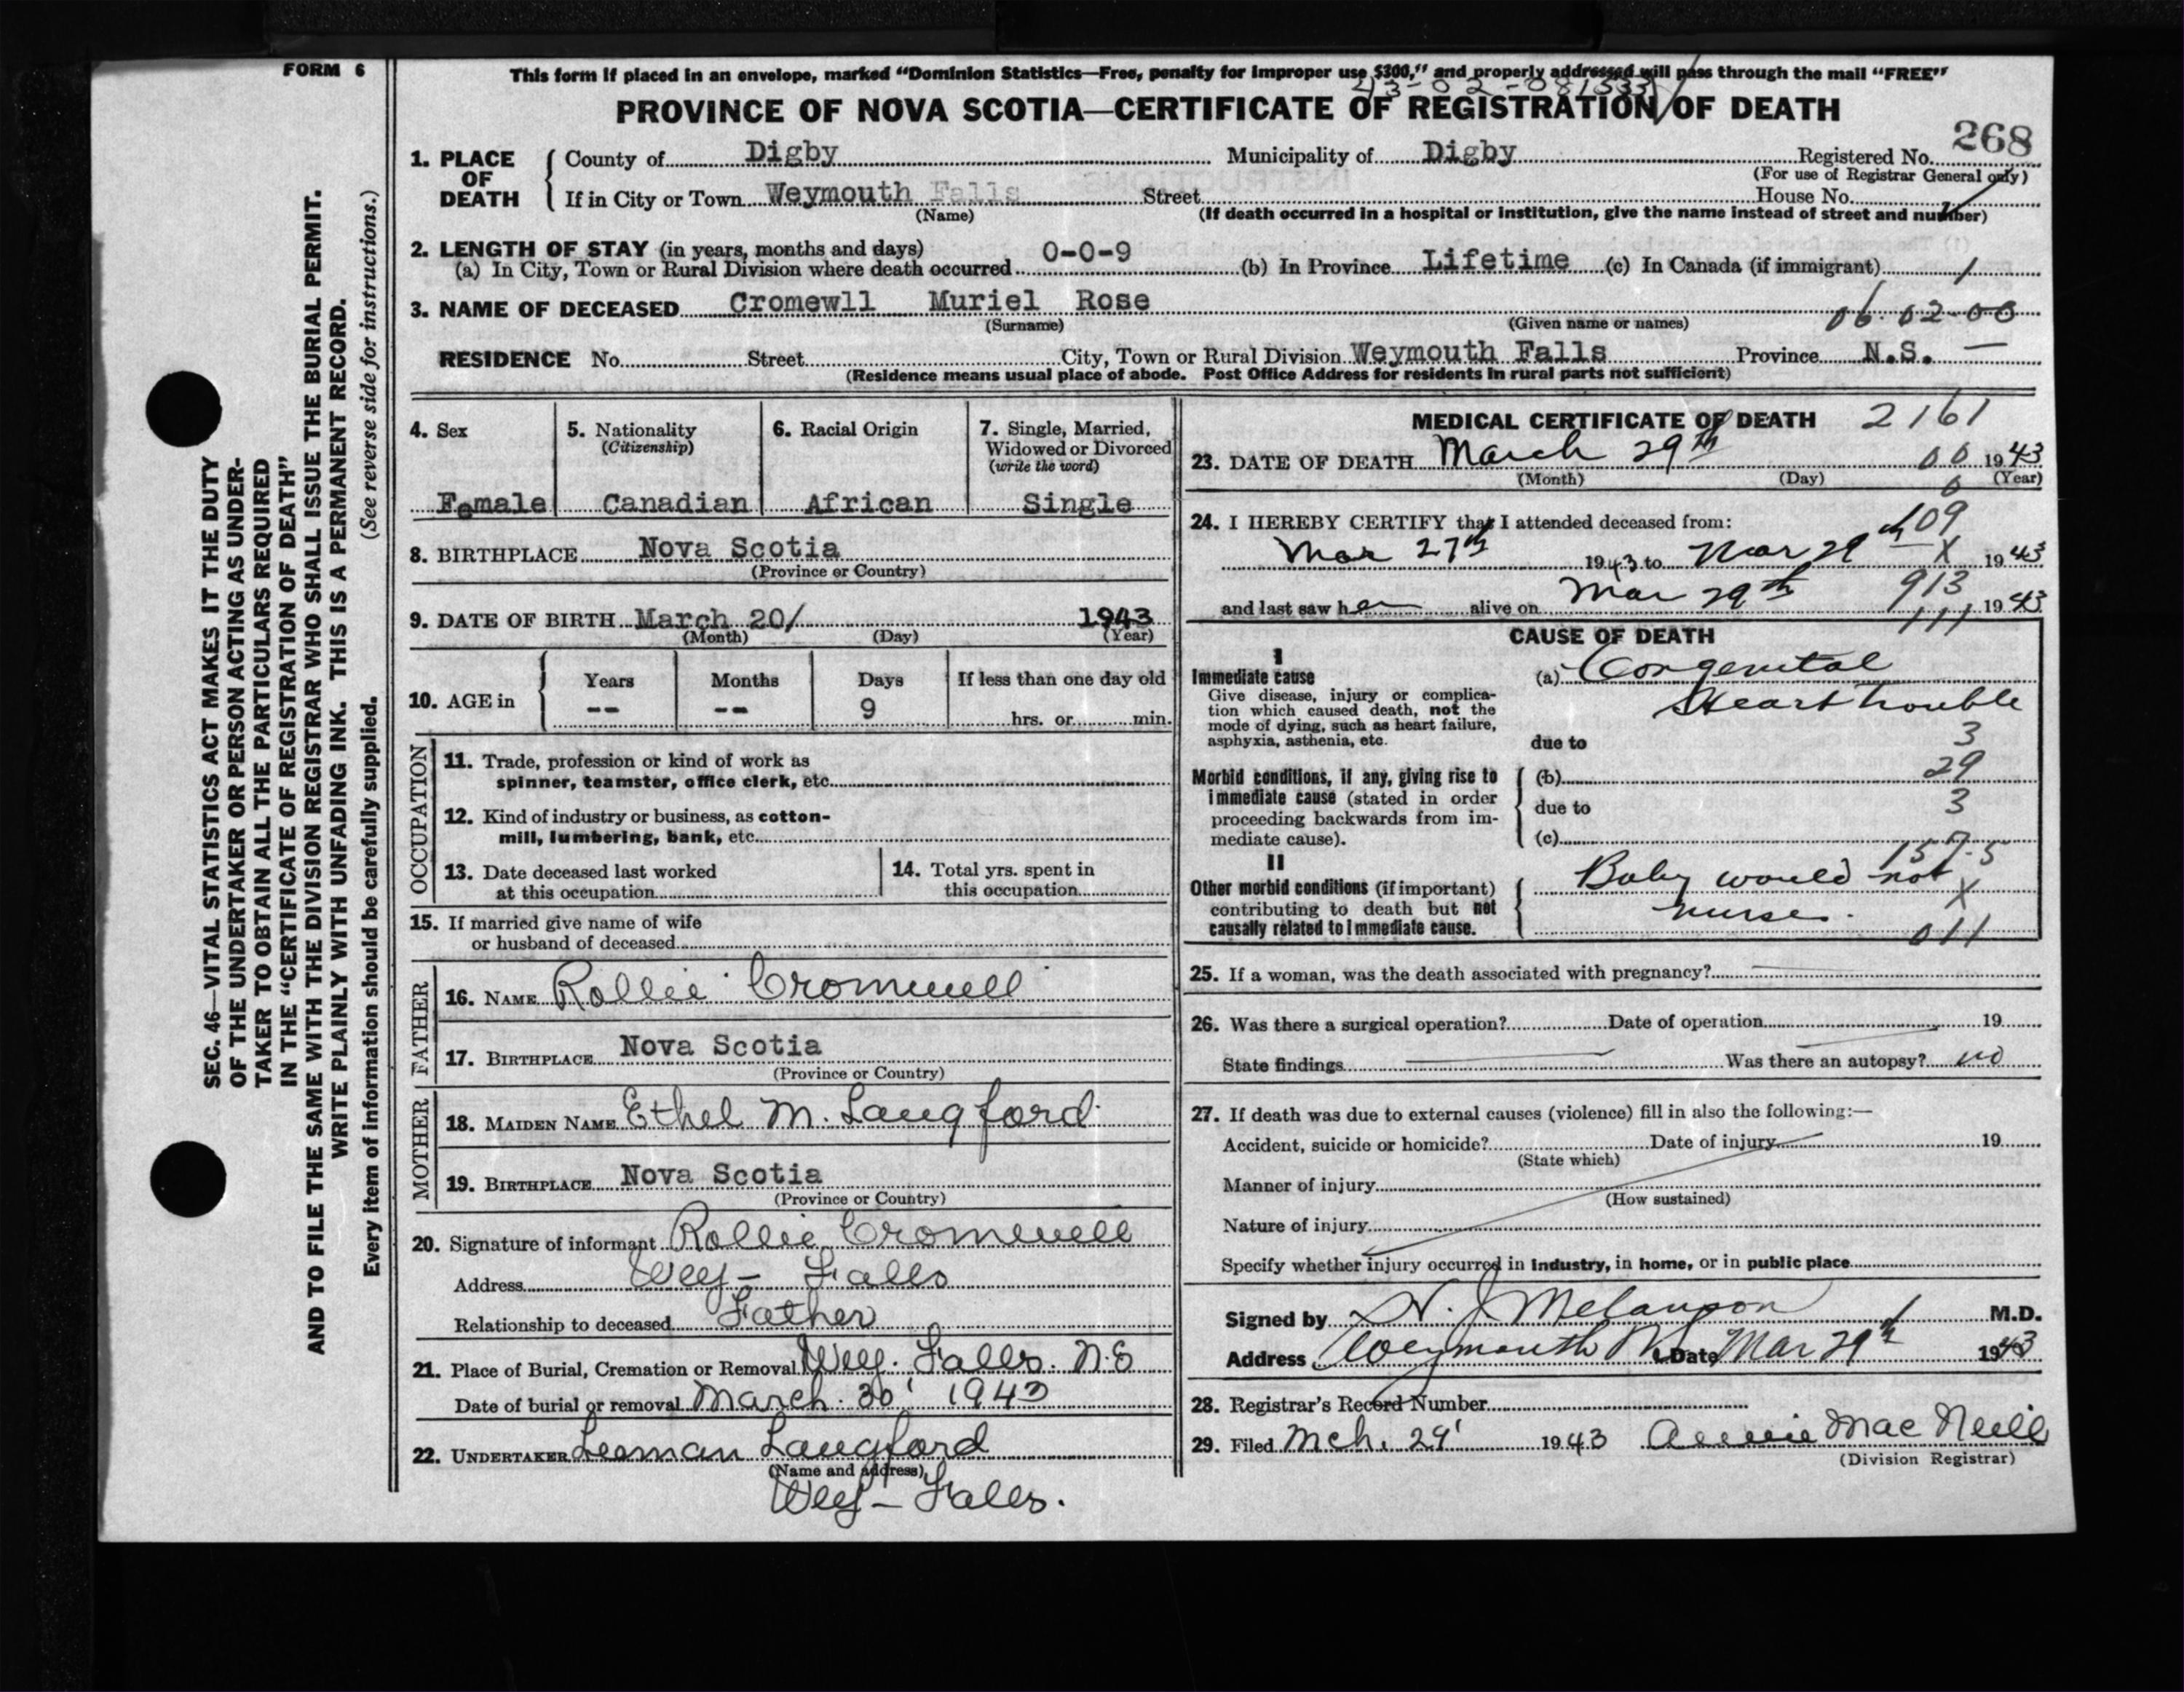 FORM 6
This form if placed in an envelope, marked "Dominion Statistics—Free, penalty for improper use $300," and properly addressed will pass through the mail "FREE"
PROVINCE OF NOVA SCOTIA—CERTIFICATE OF REGISTRATION OF DEATH
268
1. PLACE OF DEATH County of Digby Municipality of Digby Registered No.
(For use of Registrar General only)
If in City or Town Weymouth Falls Street House No.
(Name) (If death occurred in a hospital or institution, give the name instead of street and number)
2. LENGTH OF STAY (in years, months and days)
(a) In City, Town or Rural Division where death occurred 0-0-9 (b) In Province Lifetime (c) In Canada (if immigrant)
3. NAME OF DECEASED Cromewll Muriel Rose
(Surname) (Given name or names) 06-02-00
RESIDENCE No. Street City, Town or Rural Division Weymouth Falls Province N.S. —
(Residence means usual place of abode. Post Office Address for residents in rural parts not sufficient)
4. Sex 5. Nationality (Citizenship) 6. Racial Origin 7. Single, Married, Widowed or Divorced (write the word)
Female Canadian African Single
8. BIRTHPLACE Nova Scotia
(Province or Country)
9. DATE OF BIRTH March 20/ 1943
(Month) (Day) (Year)
10. AGE in Years Months Days If less than one day old
-- -- 9 hrs. or min.
OCCUPATION
11. Trade, profession or kind of work as
spinner, teamster, office clerk, etc.
12. Kind of industry or business, as cotton-
mill, lumbering, bank, etc.
13. Date deceased last worked
at this occupation
14. Total yrs. spent in
this occupation
15. If married give name of wife
or husband of deceased
FATHER
16. NAME Rollie Cromwell
17. BIRTHPLACE Nova Scotia
(Province or Country)
MOTHER
18. MAIDEN NAME Ethel M. Langford
19. BIRTHPLACE Nova Scotia
(Province or Country)
20. Signature of informant Rollie Cromwell
Address Wey- Falls
Relationship to deceased Father
21. Place of Burial, Cremation or Removal Wey. Falls. N.S
Date of burial or removal March. 30' 1943
22. UNDERTAKER Leeman Langford
(Name and address)
Wey- Falls.
MEDICAL CERTIFICATE OF DEATH 2161
23. DATE OF DEATH March 29th 00 1943
(Month) (Day) (Year)
24. I HEREBY CERTIFY that I attended deceased from:
109
Mar 27th 1943 to Mar 29th X 1943
913
and last saw her alive on Mar 29th 1943
111
CAUSE OF DEATH
I
Immediate cause
Give disease, injury or complica-
tion which caused death, not the
mode of dying, such as heart failure,
asphyxia, asthenia, etc.
(a) Congenital
Heart trouble
due to 3
Morbid conditions, if any, giving rise to
immediate cause (stated in order
proceeding backwards from im-
mediate cause).
(b) 29
due to 3
(c)
157-5
II
Other morbid conditions (if important)
contributing to death but not
causally related to immediate cause.
Baby would not
nurse. X
011
25. If a woman, was the death associated with pregnancy?
26. Was there a surgical operation? Date of operation 19
State findings Was there an autopsy? no
27. If death was due to external causes (violence) fill in also the following:—
Accident, suicide or homicide? Date of injury 19
(State which)
Manner of injury
(How sustained)
Nature of injury
Specify whether injury occurred in industry, in home, or in public place
Signed by H. J. Melanson M.D.
Address Weymouth Date Mar 29th 1943
28. Registrar's Record Number
29. Filed Mch. 29' 1943 Annie MacNeill
(Division Registrar)
SEC. 46—VITAL STATISTICS ACT MAKES IT THE DUTY
OF THE UNDERTAKER OR PERSON ACTING AS UNDER-
TAKER TO OBTAIN ALL THE PARTICULARS REQUIRED
IN THE "CERTIFICATE OF REGISTRATION OF DEATH"
AND TO FILE THE SAME WITH THE DIVISION REGISTRAR WHO SHALL ISSUE THE BURIAL PERMIT.
WRITE PLAINLY WITH UNFADING INK. THIS IS A PERMANENT RECORD.
Every item of information should be carefully supplied. (See reverse side for instructions.)